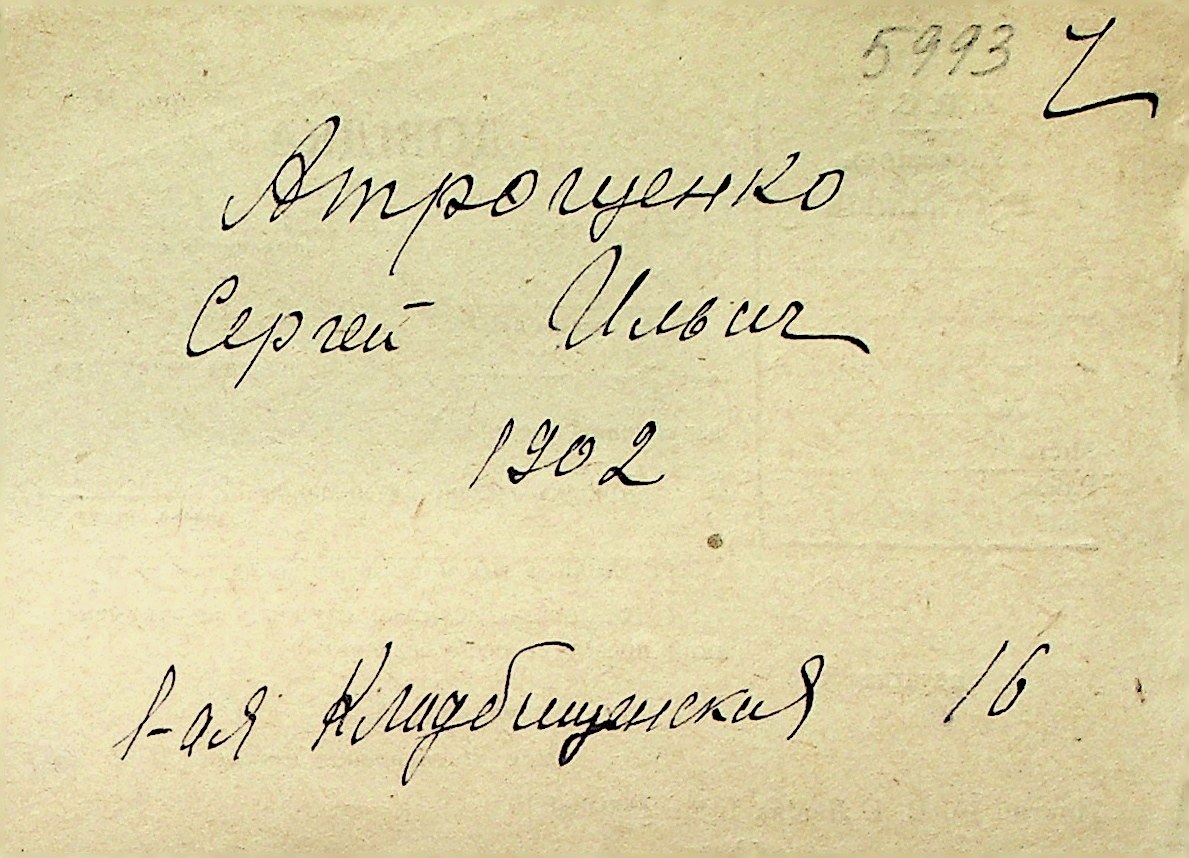 5993
Атрощенко
Сергей Ильич
1902
1-ая Кладбищенская 16